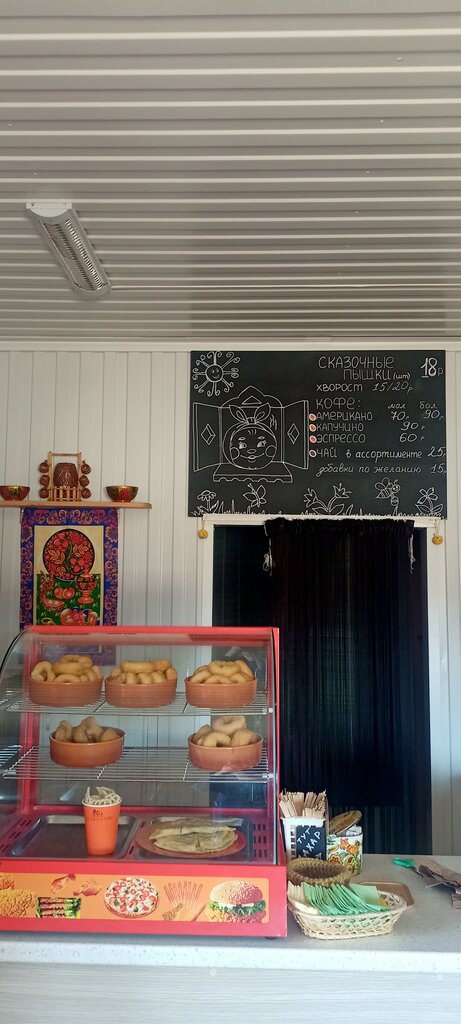 СКАЗОЧНЫЕ
ПЫШКИ (шт) 18р
ХВОРОСТ 15/20р
КОФЕ: мал бол
АМЕРИКАНО 70р 90р
КАПУЧИНО 90р
ЭСПРЕССО 60р
ЧАЙ в ассортименте 25
добавки по желанию 15
ТУТ
САХАР